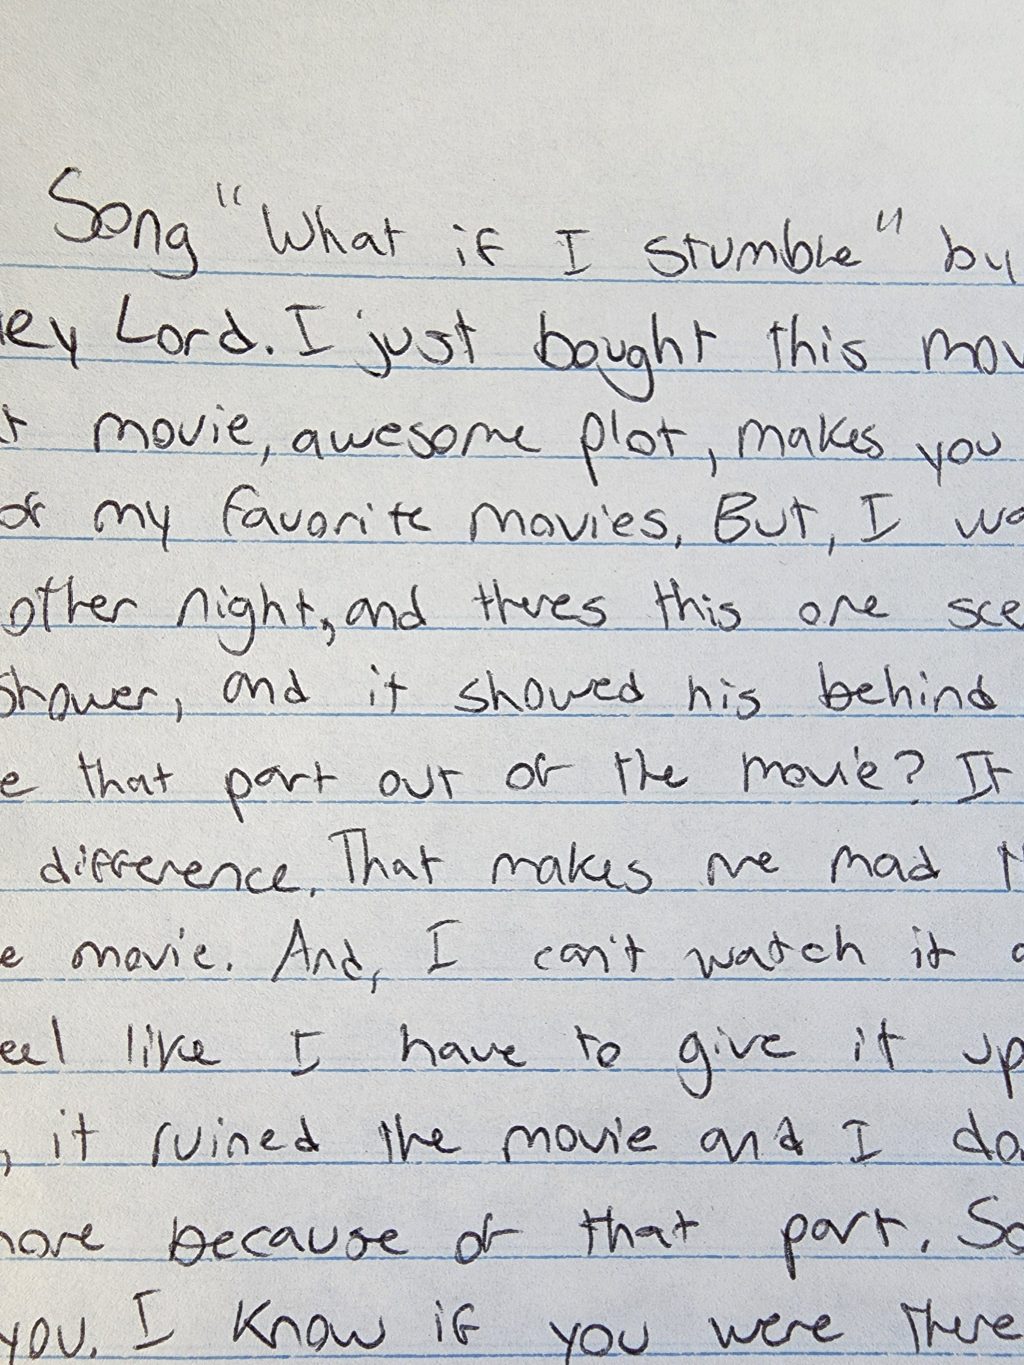 Song "What if I stumble" by
ey Lord. I just bought this mov
t movie, awesome plot, makes you
of my favorite movies. But, I wa
other night, and theres this one sce
shower, and it showed his behind
e that part out of the movie? It
difference. That makes me mad
e movie. And, I can't watch it
eel like I have to give it up
, it ruined the movie and I do
more because of that part. So
you. I know if you were there